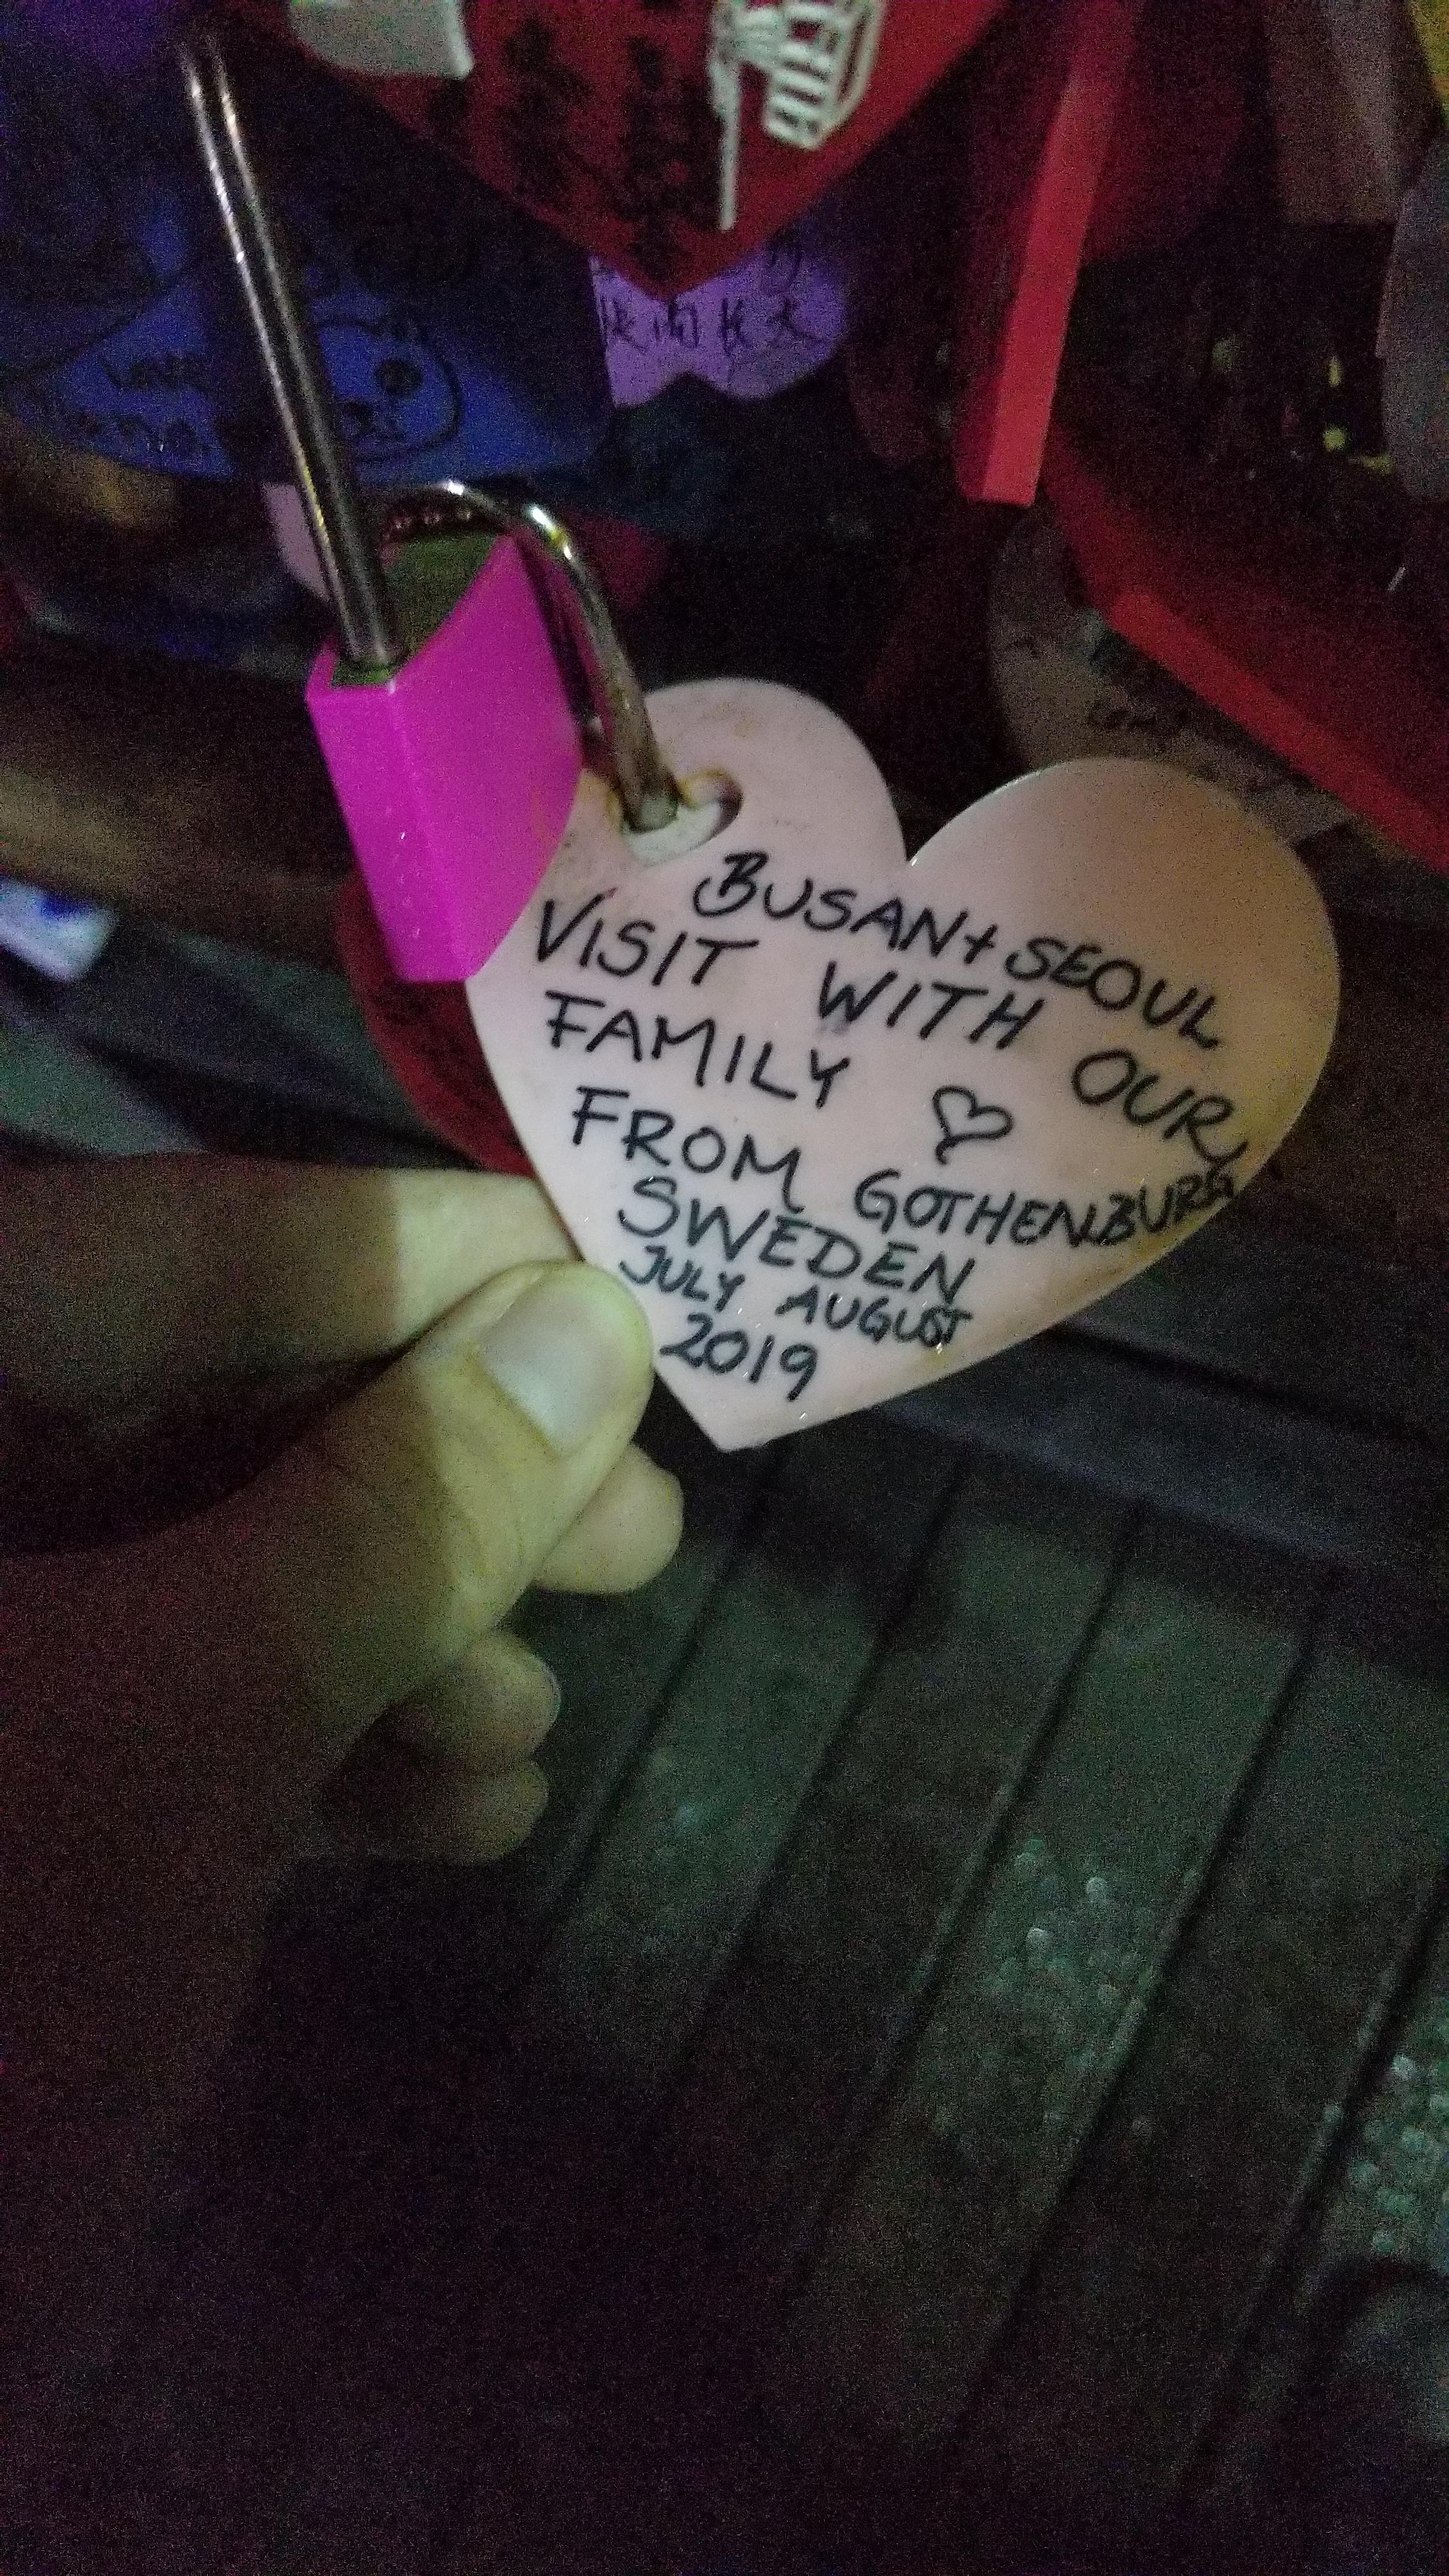 BUSAN+SEOUL
VISIT WITH OUR
FAMILY ♡
FROM GOTHENBURG
SWEDEN
JULY AUGUST
2019